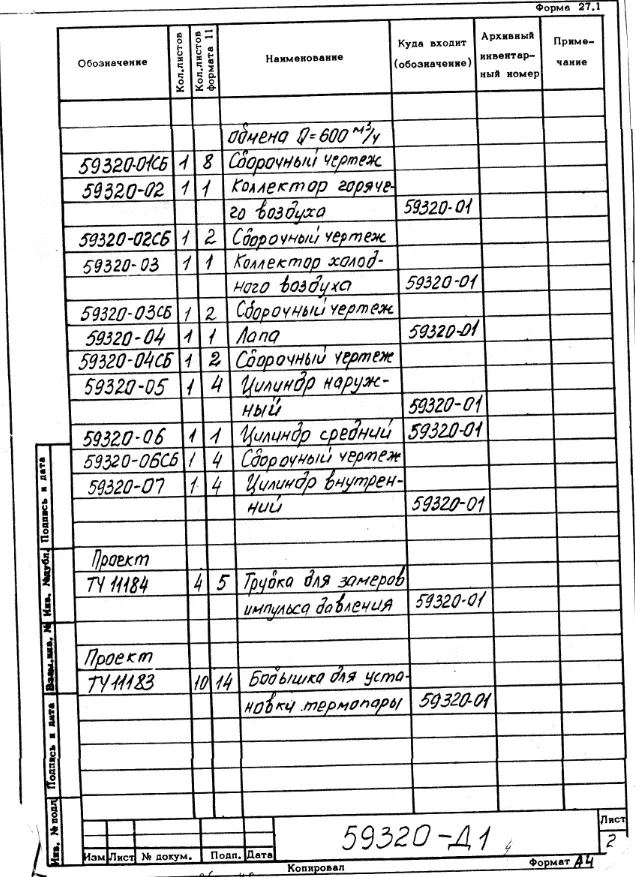 Форма 27.1
Обозначение Кол.листов Кол.листов формата 11 Наименование Куда входит (обозначение) Архивный инвентарный номер Примечание
обмена Q=600 м³/ч
59320-01СБ 1 8 Сборочный чертеж
59320-02 1 1 Коллектор горяче-
го воздуха 59320-01
59320-02СБ 1 2 Сборочный чертеж
59320-03 1 1 Коллектор холод-
ного воздуха 59320-01
59320-03СБ 1 2 Сборочный чертеж
59320-04 1 1 Лапа 59320-01
59320-04СБ 1 2 Сборочный чертеж
59320-05 1 4 Цилиндр наруж-
ный 59320-01
59320-06 1 1 Цилиндр средний 59320-01
59320-06СБ 1 4 Сборочный чертеж
59320-07 1 4 Цилиндр внутрен-
ний 59320-01
Проект
ТУ 11184 4 5 Трубка для замеров
импульса давления 59320-01
Проект
ТУ 11183 10 14 Бобышка для уста-
новки термопары 59320-01
Инв. № подл. Подпись и дата Взам.инв. № Инв. №дубл. Подпись и дата
59320-Д1
Лист
2
Изм Лист № докум. Подп. Дата
Копировал Формат А4